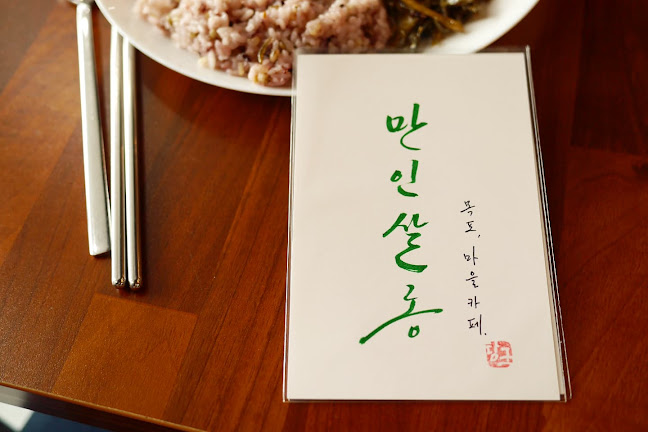 만인살롱
목포, 마을카페.